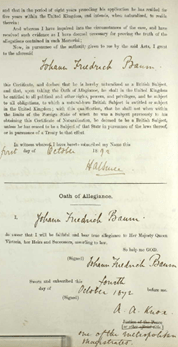 and that in the period of eight years preceding his application he has resided for
five years within the United Kingdom, and intends, when naturalized, to reside
therein:
And whereas I have inquired into the circumstances of the case, and have
received such evidence as I have deemed necessary for proving the truth of the
allegations contained in such Memorial;
Now, in pursuance of the authority given to me by the said Acts, I grant
to the aforesaid
Johann Friedrich Baum
this Certificate, and declare that he is hereby naturalized as a British Subject,
and that, upon taking the Oath of Allegiance, he shall in the United Kingdom
be entitled to all political and other rights, powers, and privileges, and be subject
to all obligations, to which a natural-born British Subject is entitled or subject
in the United Kingdom; with this qualification, that he shall not when within
the limits of the Foreign State of which he was a subject previously to his
obtaining this Certificate of Naturalization, be deemed to be a British Subject,
unless he has ceased to be a Subject of that State in pursuance of the laws thereof,
or in pursuance of a Treaty to that effect.
In witness whereof, I have hereto subscribed my Name this
first day of October 1892
Oath of Allegiance.
I, Johann Friedrich Baum
do swear that I will be faithful and bear true allegiance to Her Majesty Queen
Victoria, her Heirs and Successors, according to law.
So help me GOD.
(Signed) Johann Friedrich Baum
Sworn and subscribed this fourth
day of October 1872 before me.
(Signed) A. A. Knox
one of the metropolitan
magistrates